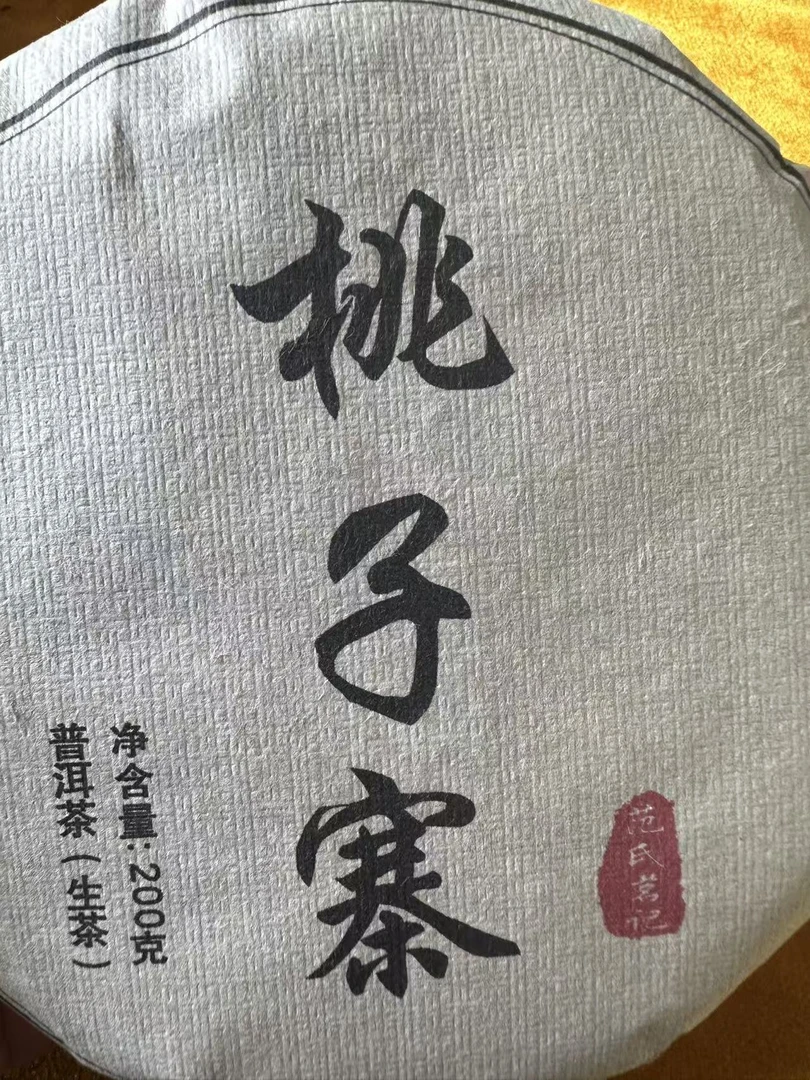 桃子寨
净含量:200克
普洱茶(生茶)
范氏茗记